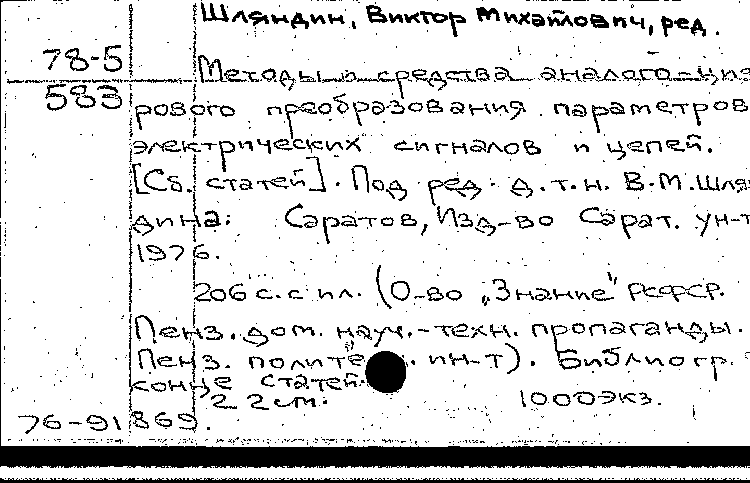 Шляндин, Виктор Михайлович, ред.
78-5
Методы и средства аналого-циф
583
рового преобразования параметров
электрических сигналов и цепей.
[Сб. статей]. Под ред. д.т.н. В.М.Шлян
дина. Саратов, Изд-во Сарат. ун-т
1976.
206 с. с ил. (О-во „Знание" РСФСР.
Пенз. дом. науч.-техн. пропаганды.
Пенз. политехн. ин-т). Библиогр.
конце статей.
22 см. 1000экз.
76-91869.